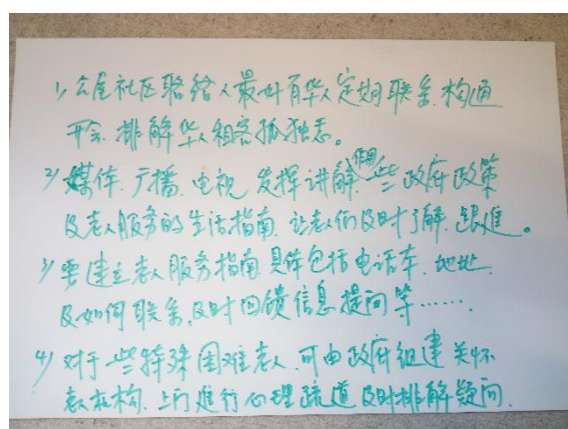 1) 公屋社区联络人最好有华人定期联系.构通
开会.排解华人租客孤独感。
2) 媒体.广播.电视 发挥讲解作用 些政府政策
及老人服务的生活指南.让老人们及时了解.跟进。
3) 要建立老人服务指南.具体包括电话本.地址.
及如何联系,及时回馈信息提问等……
4) 对于些特殊困难老人.可由政府组建关怀
老人机构.上门进行心理疏道及时排解疑问.